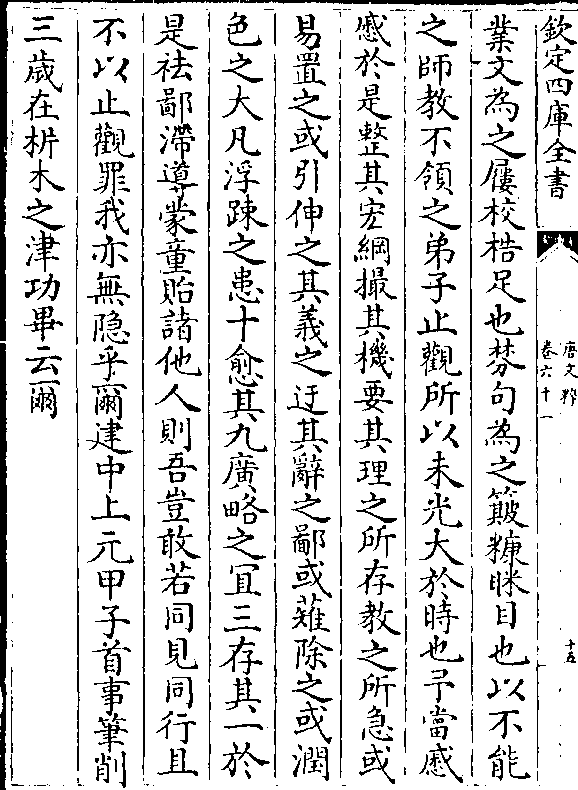 欽定四庫全書
唐文粹
卷六十一
十五
業文為之屨校梏足也棼句為之簸糠眯目也以不能
之師教不領之弟子止觀所以未光大於時也予當慼
慼於是整其宏綱撮其機要其理之所存教之所急或
易置之或引伸之其義之迂其辭之鄙或薙除之或潤
色之大凡浮疎之患十愈其九廣略之宜三存其一於
是祛鄙滯導蒙童貽諸他人則吾豈敢若同見同行且
不以止觀罪我亦無隐乎爾建中上元甲子首事筆削
三歳在析木之津功畢云爾